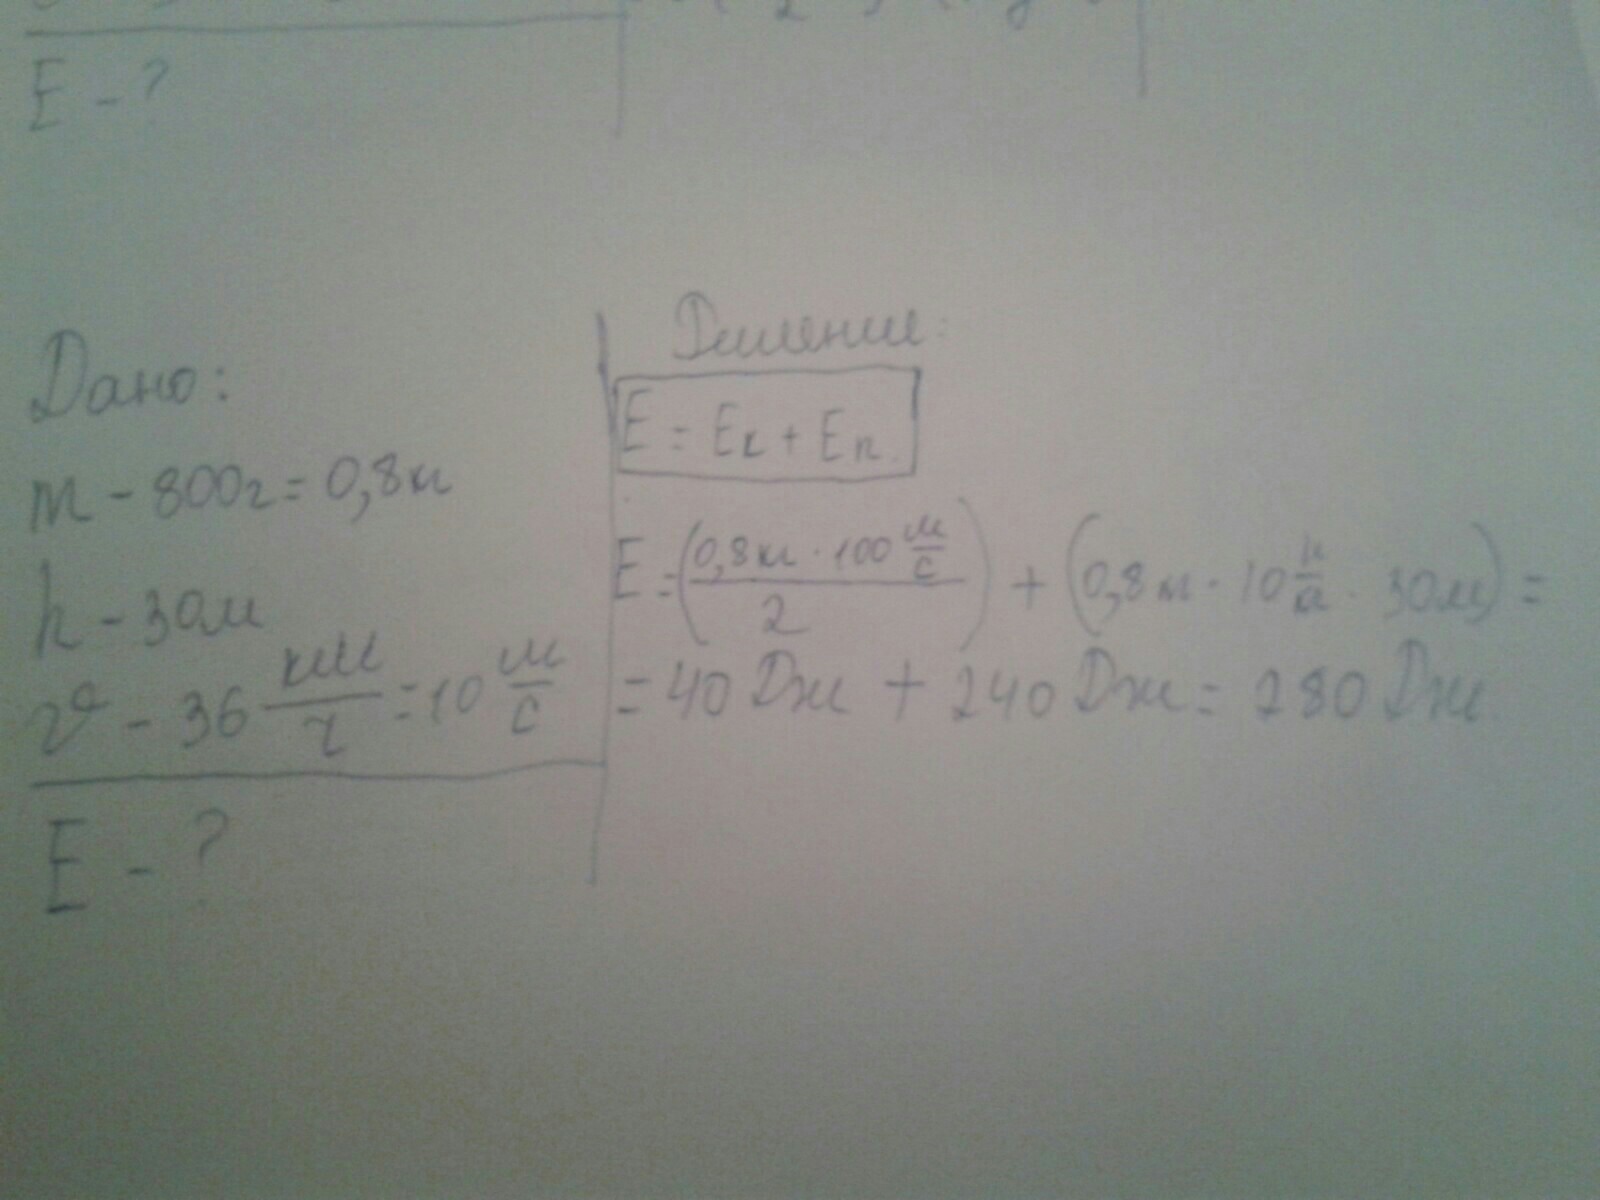 E - ?
Дано:
m - 800г = 0,8кг
h - 30м
v - 36 км/ч = 10 м/с
E - ?
Решение:
E = Eк + Eп.
E = (0,8кг · 100 м/с / 2) + (0,8кг · 10 н/кг · 30м) =
= 40 Дж + 240 Дж = 280 Дж.